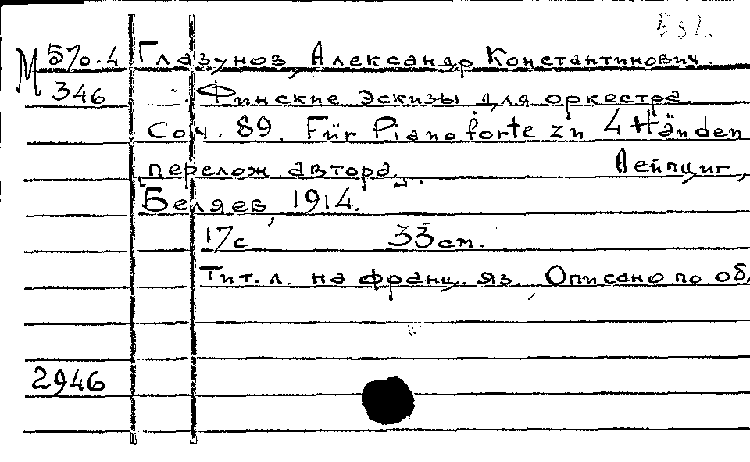 М 570-4 Глазунов, Александр Константинович.
346 Финские эскизы для оркестра
Соч. 89. Für Pianoforte zu 4 Händen
[перелож автора.]. Лейпциг,
Беляев, 1914.
17с 33 см.
Тит. л. на франц. яз. Описано по об.
2946